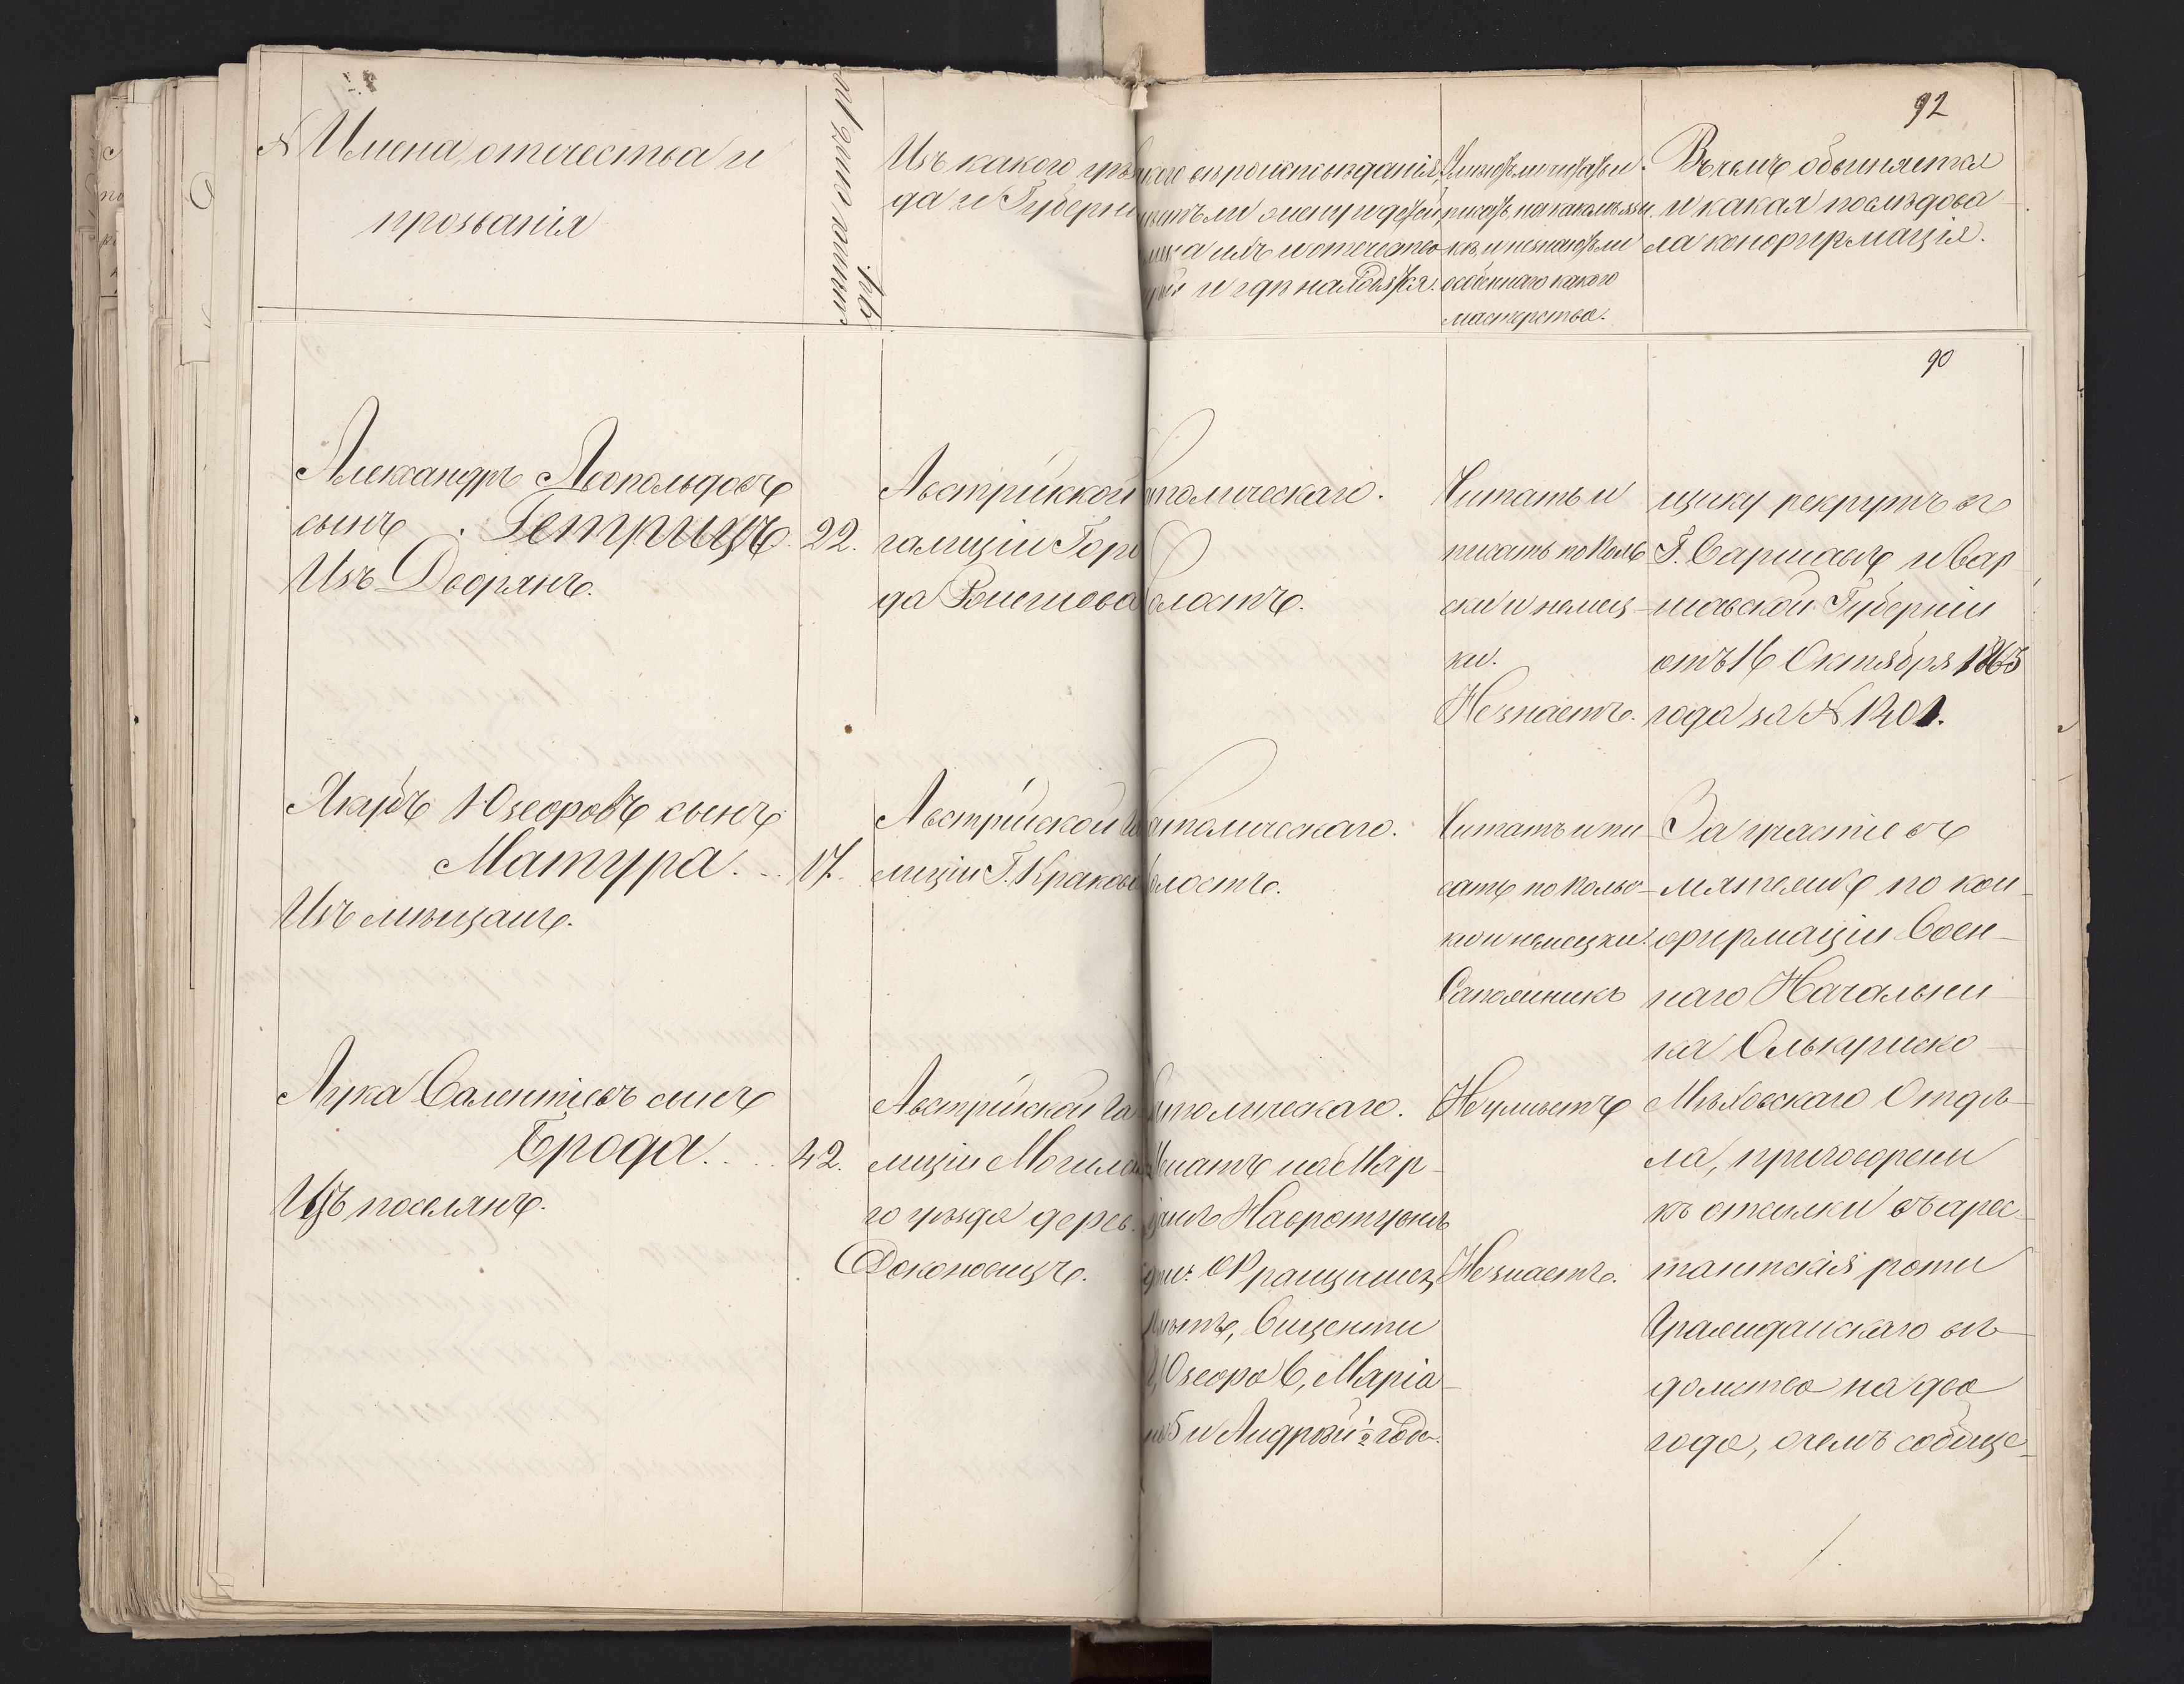 92
№ Имена отчества и
прозванія
Изъ какого уѣз
да и Губерніи
каго вѣроисповѣданія,
имѣетъ ли жену и дѣтей,
имя имъ и отечество
и гдѣ находятся.
Умѣютъ ли читать и
писать на какомъ язы
кѣ, и незнаютъ ли
особеннаго какого
мастерства.
Въ чемъ обвиняется
и какая послѣдова
ла конфирмація.
90
Александръ Леопольдовъ
сынъ Гетрицъ. 22.
Изъ Дворянъ.
Австрійской
галиціи Горо
да
католическаго.
холостъ.
Читать и
писать по поль
ски и немец
ки.
Незнаетъ.
щику рекрутъ въ
Г. Варшавѣ и Вар
шавской Губерніи
отъ 16 Октября 1863
года за № 1201.
Якубъ Юзефовъ сынъ
Матура. 17.
Изъ мѣщанъ.
Австрійской Га
лиціи Г. Кракова
католическаго.
холостъ.
Читать и пи
сать по поль-
ки и немецки.
Сапожникъ
За участіе въ
мятежѣ по кон-
фирмаціи Воен-
наго Начальни-
ка Олькушско-
Мѣховскаго Отдѣ-
ла, приговорены
къ отсылки въ арес-
тантскія роты
Гражданскаго вѣ-
домства на два
года, о чемъ сообще-
Лука Валентіевъ сынъ
Брода. 42.
Изъ поселянъ.
Австрійской Га
лиціи
го уѣзда дерев.
католическаго.
Женатъ на Мар-
дѣти: Францишекъ
лѣтъ, Виценти
Юзефъ 6, Маріа-
на 5 и Андрей ½ года.
Неумѣетъ
Незнаетъ.